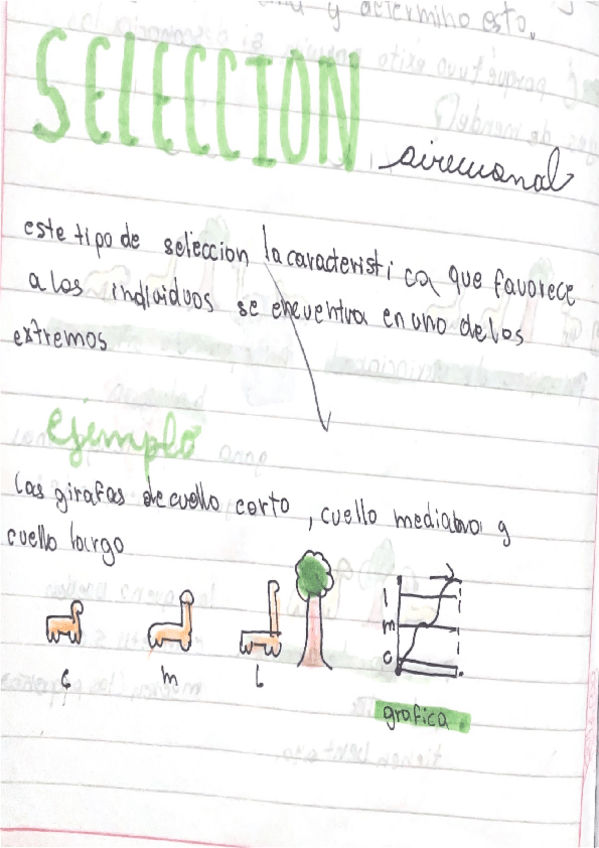 y determino esto.
SELECCION
este tipo de seleccion la caracteristi ca que favorece
a los individuos se encuentra en uno de los
extremos
ejemplo
las girafas de cuello corto, cuello mediano y
cuello largo
l
m
c
c m L
grafica.